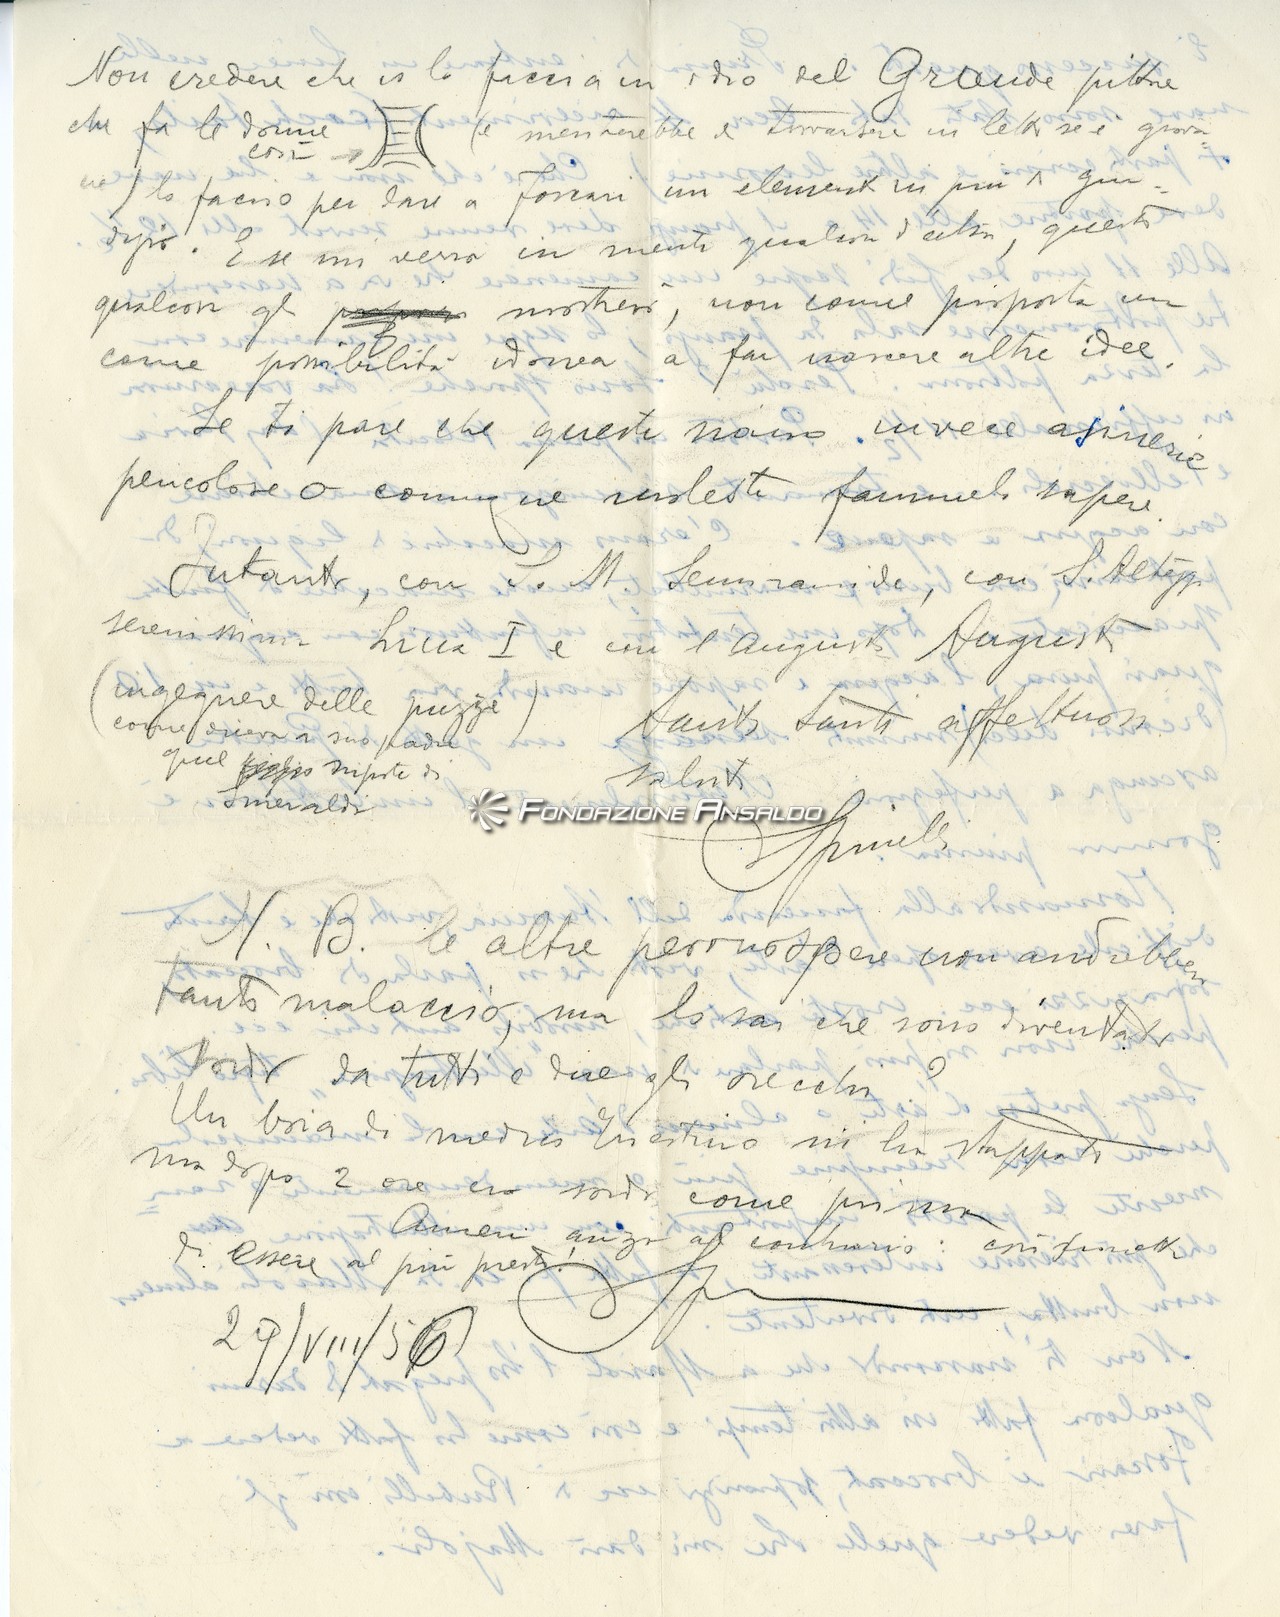 Non credere che io lo faccia in odio del Grande pittore
che fa le donne
così
(e meriterebbe di trovarsele in letto se è giova=
ne) lo faccio per dare a Foscari un elemento in più di giu=
dizio. E se mi verrà in mente qualcosa d'altro, questo
qualcosa gli mostrerò, non come proposta ma
come possibilità idonea a far nascere altre idee.
Se ti pare che queste siano invece asinerie
pericolose o comunque moleste fammelo sapere.
Intanto, con S. M. Semiramide, con S. Altezza
serenissima Luca I e con l'augusto Augusto
(ingegnere delle puzze)
come diceva a suo padre
quel nipote di
Smeraldi
tanti tanti affettuosi
saluti
Spinelli
FONDAZIONE ANSALDO
N. B. le altre peronospere non andrebbero
tanto malaccio, ma lo sai che sono diventato
sordo da tutti e due gli orecchi?
Un boia di medico triestino mi ha stappato
ma dopo 2 ore ero sordo come prima
anzi al contrario: così
di essere al più presto!
29/VIII/56